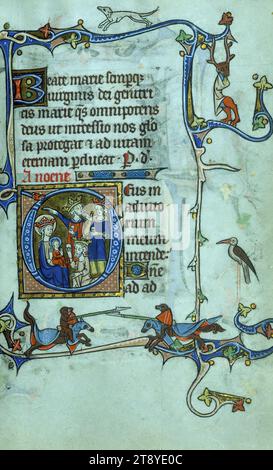 Beate marie semper
virginis dei genitri
cis marie qs omnipotens
deus ut intessio nos glo
sa protegat et ad vitam
eternam perducat. P. d.
A noene.
Deus in
adiuto
rium
meum
intende
Dñe
ad ad
alamy
Image ID: 2T8YE0C
www.alamy.com